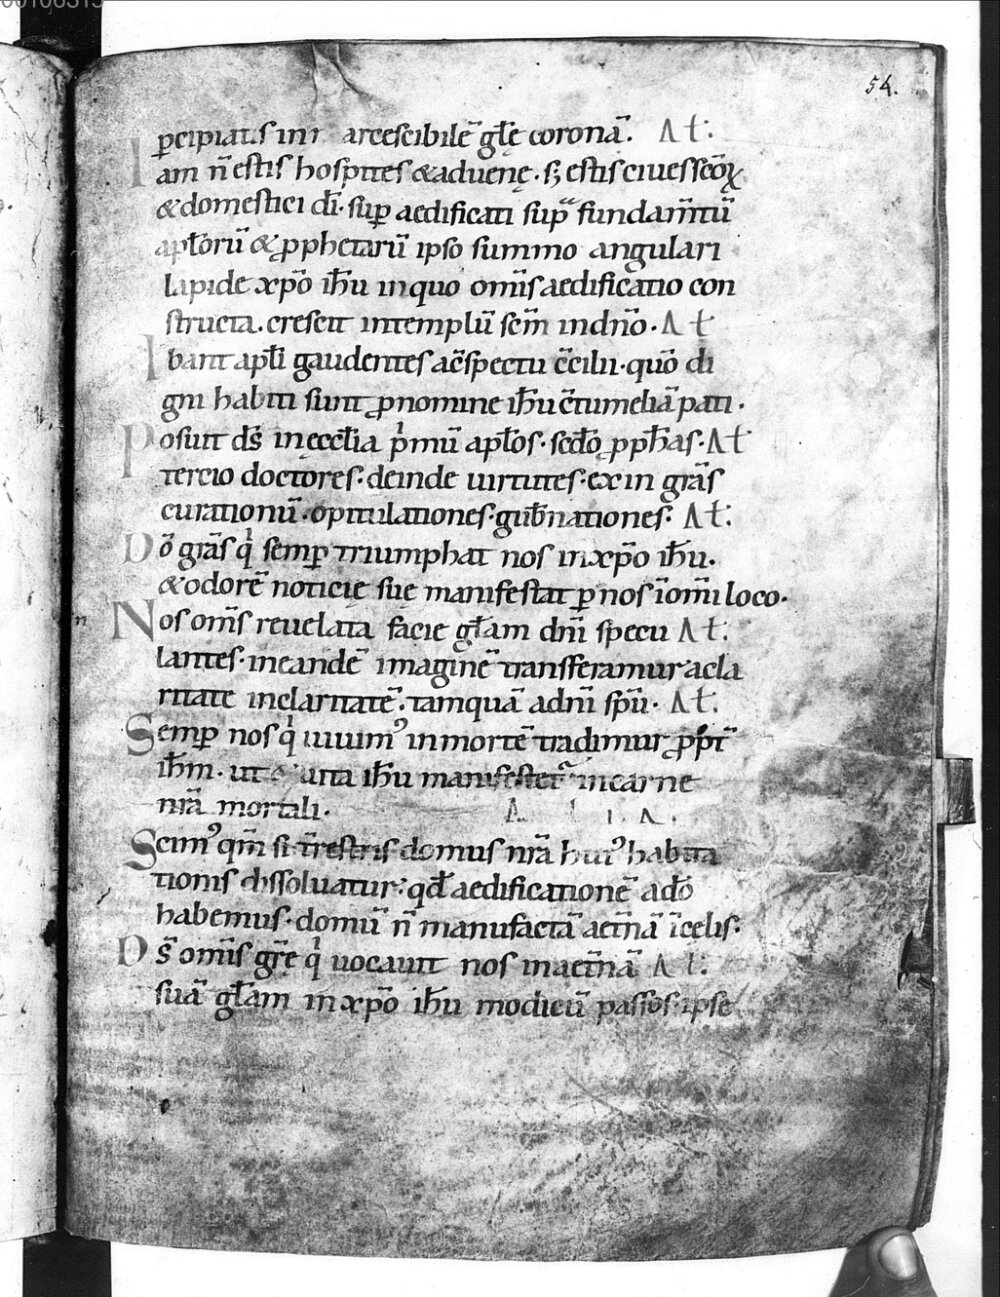 54.
ꝑcipiatis arcescibilē glę coronā. At̄.
Iam n̄ estis hospites & aduenę. sꝫ estis ciues scōꝝ
& domestici dī. suꝑ aedificati suꝑ fundam̄tū
apl̄orū & ꝓphetarū ipso summo angulari
lapide xp̄o ih̄u in quo om̄is aedificatio con
structa. crescit in templū scm̄ in dn̄o. At̄
Ibant apl̄i gaudentes a c̄spectu c̄cilii. qūo di
gni habiti sunt ꝓ nomine ih̄u c̄tumeliā pati.
Posuit ds̄ in ęccl̄ia pͥmū apl̄os. scd̄o ꝓph̄as. At̄
tercio doctores. deinde uirtutes. exin grās
curationū. opitulationes. gub̄nationes. At̄.
Dō grās qͥ semꝑ triumphat nos in xp̄o ih̄u.
& odorē noticię suę manifestat ꝑ nos ī om̄i loco.
Nos om̄s reuelata facie gl̄am dn̄i specu At̄.
lantes. in eandē imaginē transferamur a cla
ritate in claritatē. tamquā a dn̄i sp̄u. At̄.
Semꝑ nos qͥ uiuimꝰ in mortē tradimur ꝓpt̄
ih̄m. ut & uita ih̄u manifestet᷑ in carne
nr̄a mortali.
Scimꝰ qm̄ si t̄restris domus nr̄a huiꝰ habita
tionis dissoluatur. qd̄ aedificationē a dō
habemus. domū n̄ manufactā aet̄nā ī celis.
Ds̄ om̄is gr̄ę qͥ uocauit nos in aet̄nā At̄.
suā gl̄am in xp̄o ih̄u modicū passos ipse